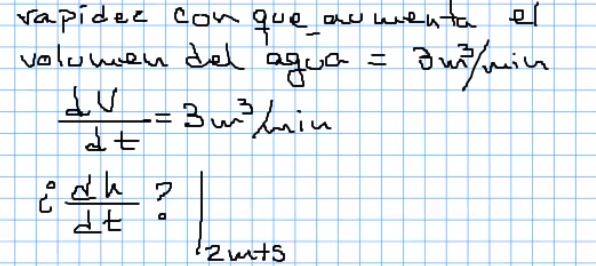 rapidez con que aumenta el
volumen del agua = 3m³/min
dV/dt = 3m³/min
¿ dh/dt ? |2mts